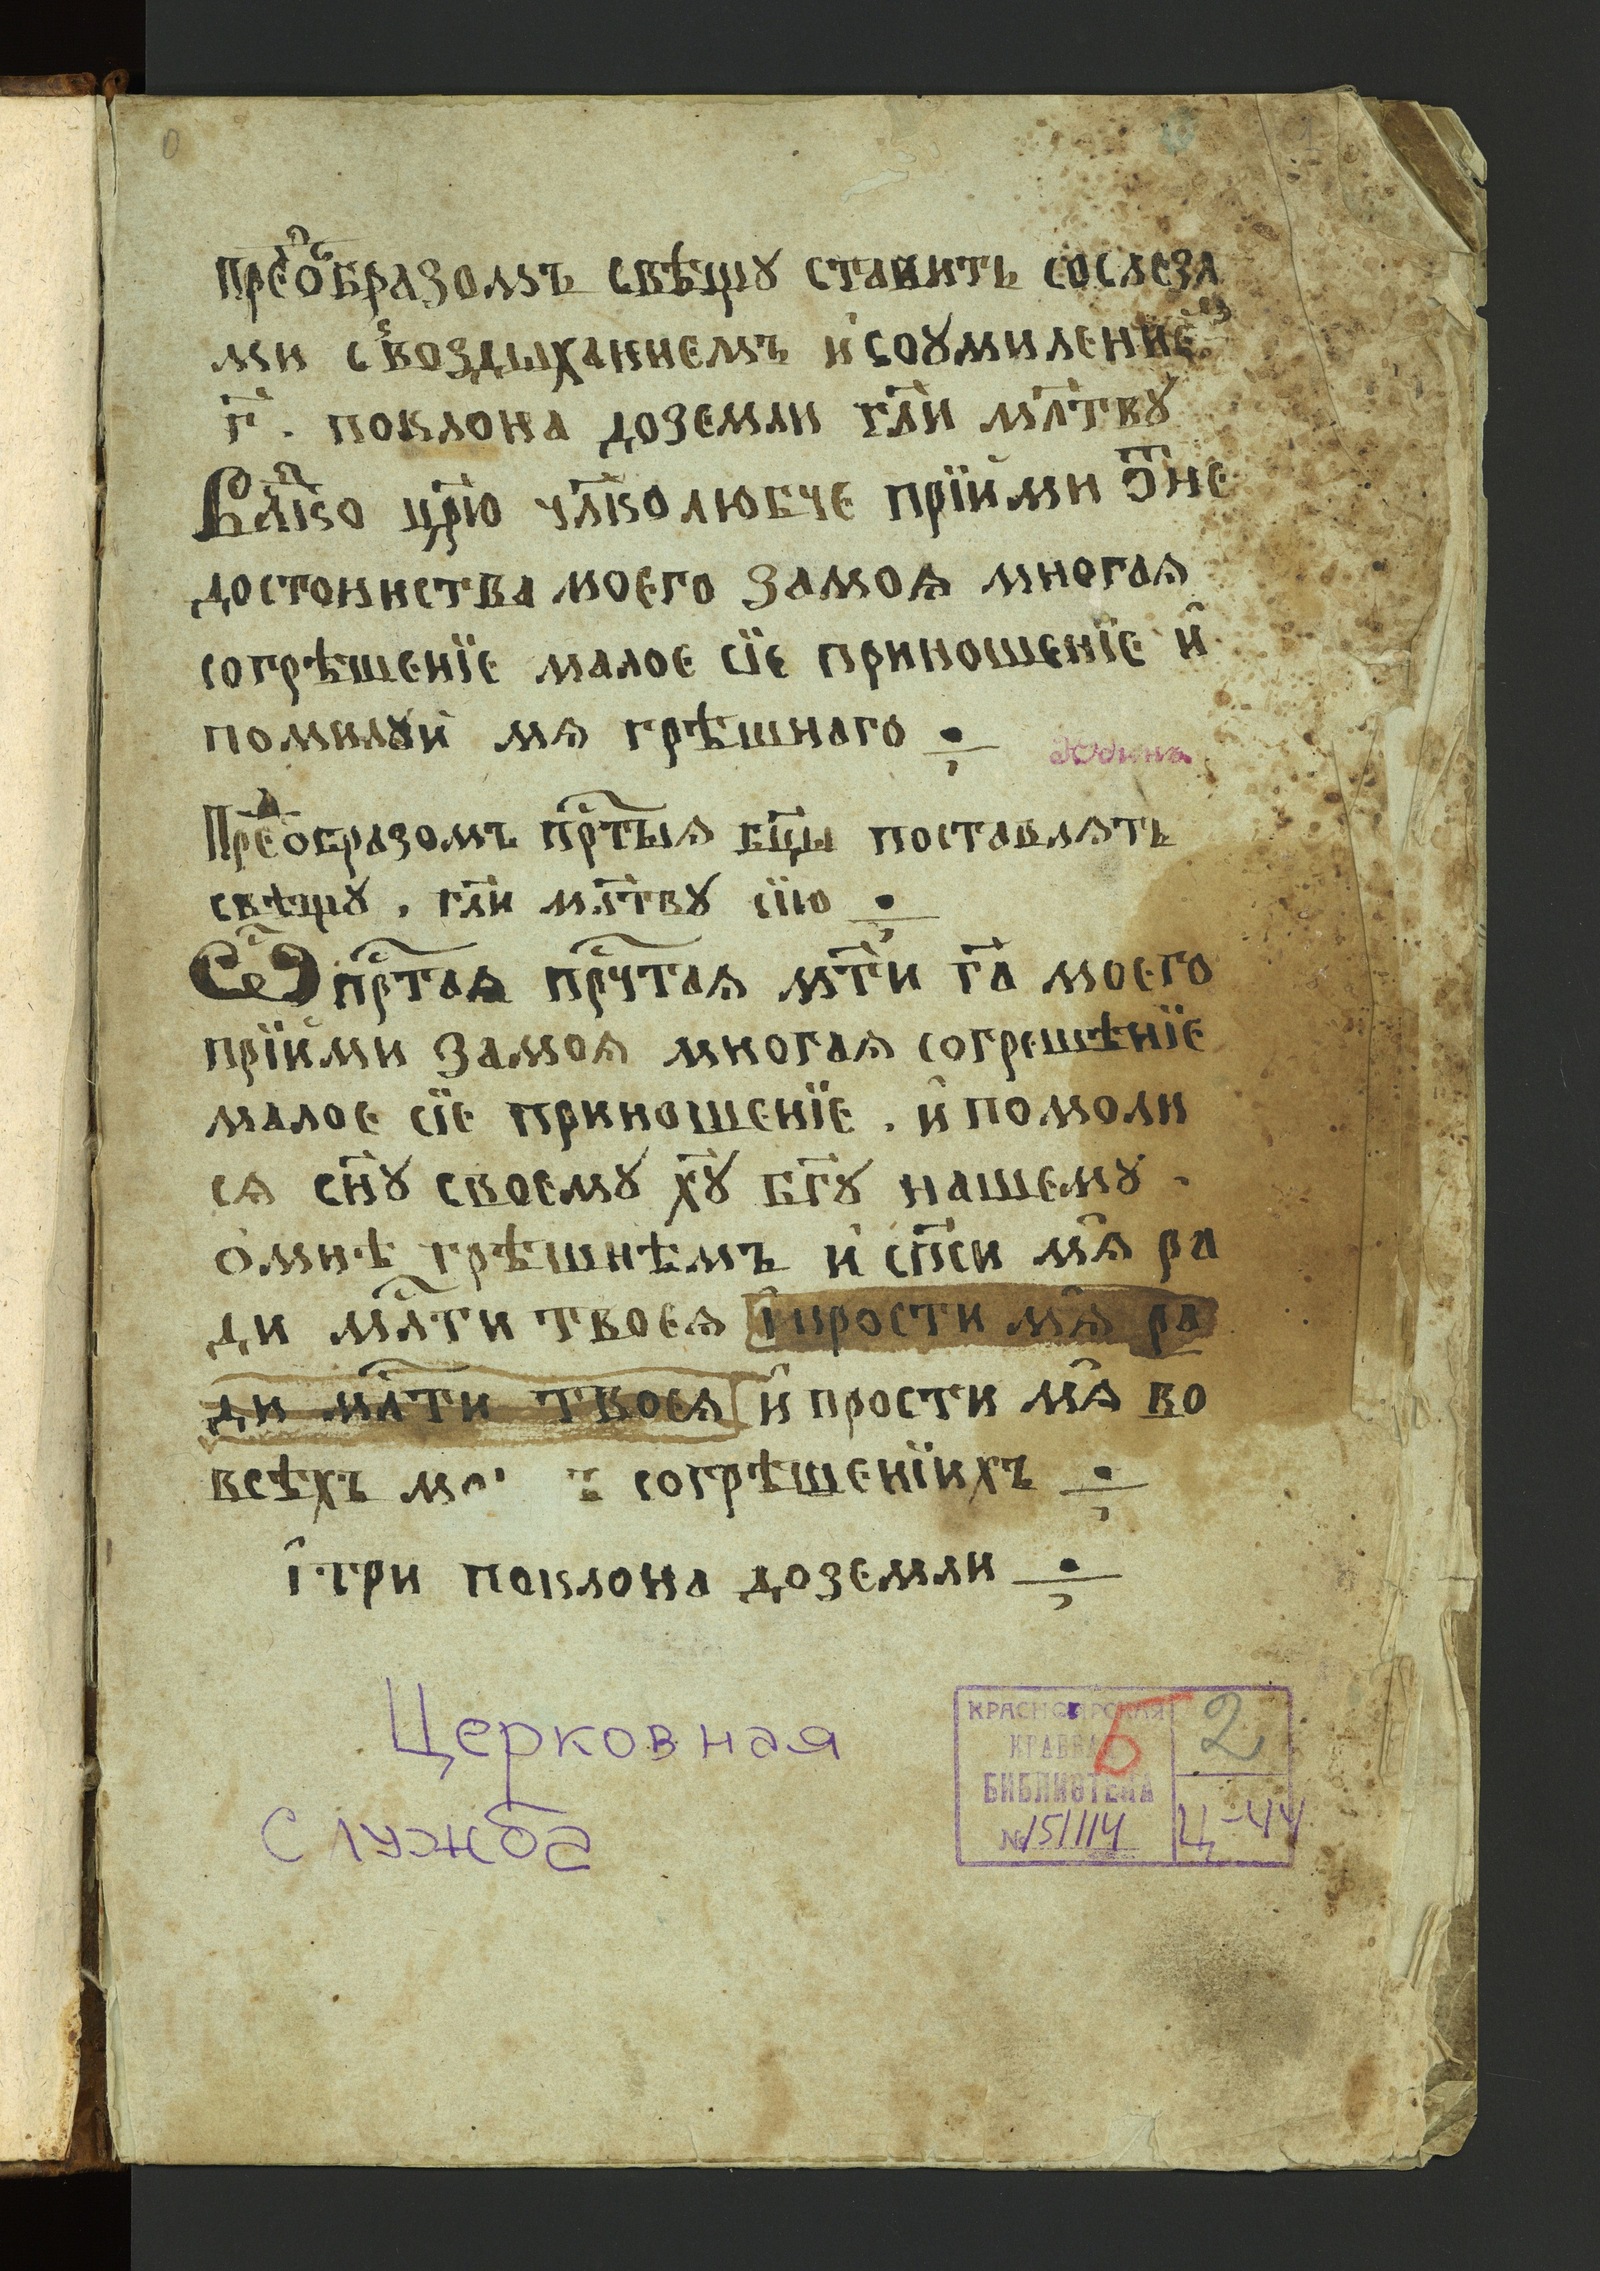 Пре́ѻ́бразомъ свѣщꙋ ставить сослеза
ми с воздыханиемъ и҆ соꙋмилениемъ
г҃ . поклона доземли гл҃и мл҃твꙋ
Влⷣко цр҃ю чл҃колюбче прїими ѿне
достоинства моего замоѧ многаѧ
согрѣшенїе малое сїе приношенїе и҆
помилꙋй мѧ грѣшнаго ÷
Юдинъ
Преⷣобразомъ прⷭ҇тыѧ бц҃ы поставлѧть
свѣщꙋ . гл҃и мл҃твꙋ сїю ÷
Ѽ прⷭ҇таѧ прⷭ҇чтаѧ мт҃и гд҃а моего
прїими замоѧ многаѧ согрешѣнїе
малое сїе приношенїе . и҆ помоли
сѧ сн҃ꙋ своемꙋ хꙋ҃ бг҃ꙋ нашемꙋ .
ѻ҆мнѣ грѣшнѣмъ и҆ сп҃си мѧ̀ ра
ди млⷭ҇ти твоеѧ і҆ прости мѧ̀ ра
ди млⷭ҇ти твоеѧ и҆ прости мѧ̀ во
всѣхъ согрѣшенїихъ ÷
і҆ три поклона доземли ÷
Церковная
Служба
КРАСНОЯРСКАЯ
КРАЕВАЯ
БИБЛИОТЕКА
№ 151114
Б
2
Ц-44
0